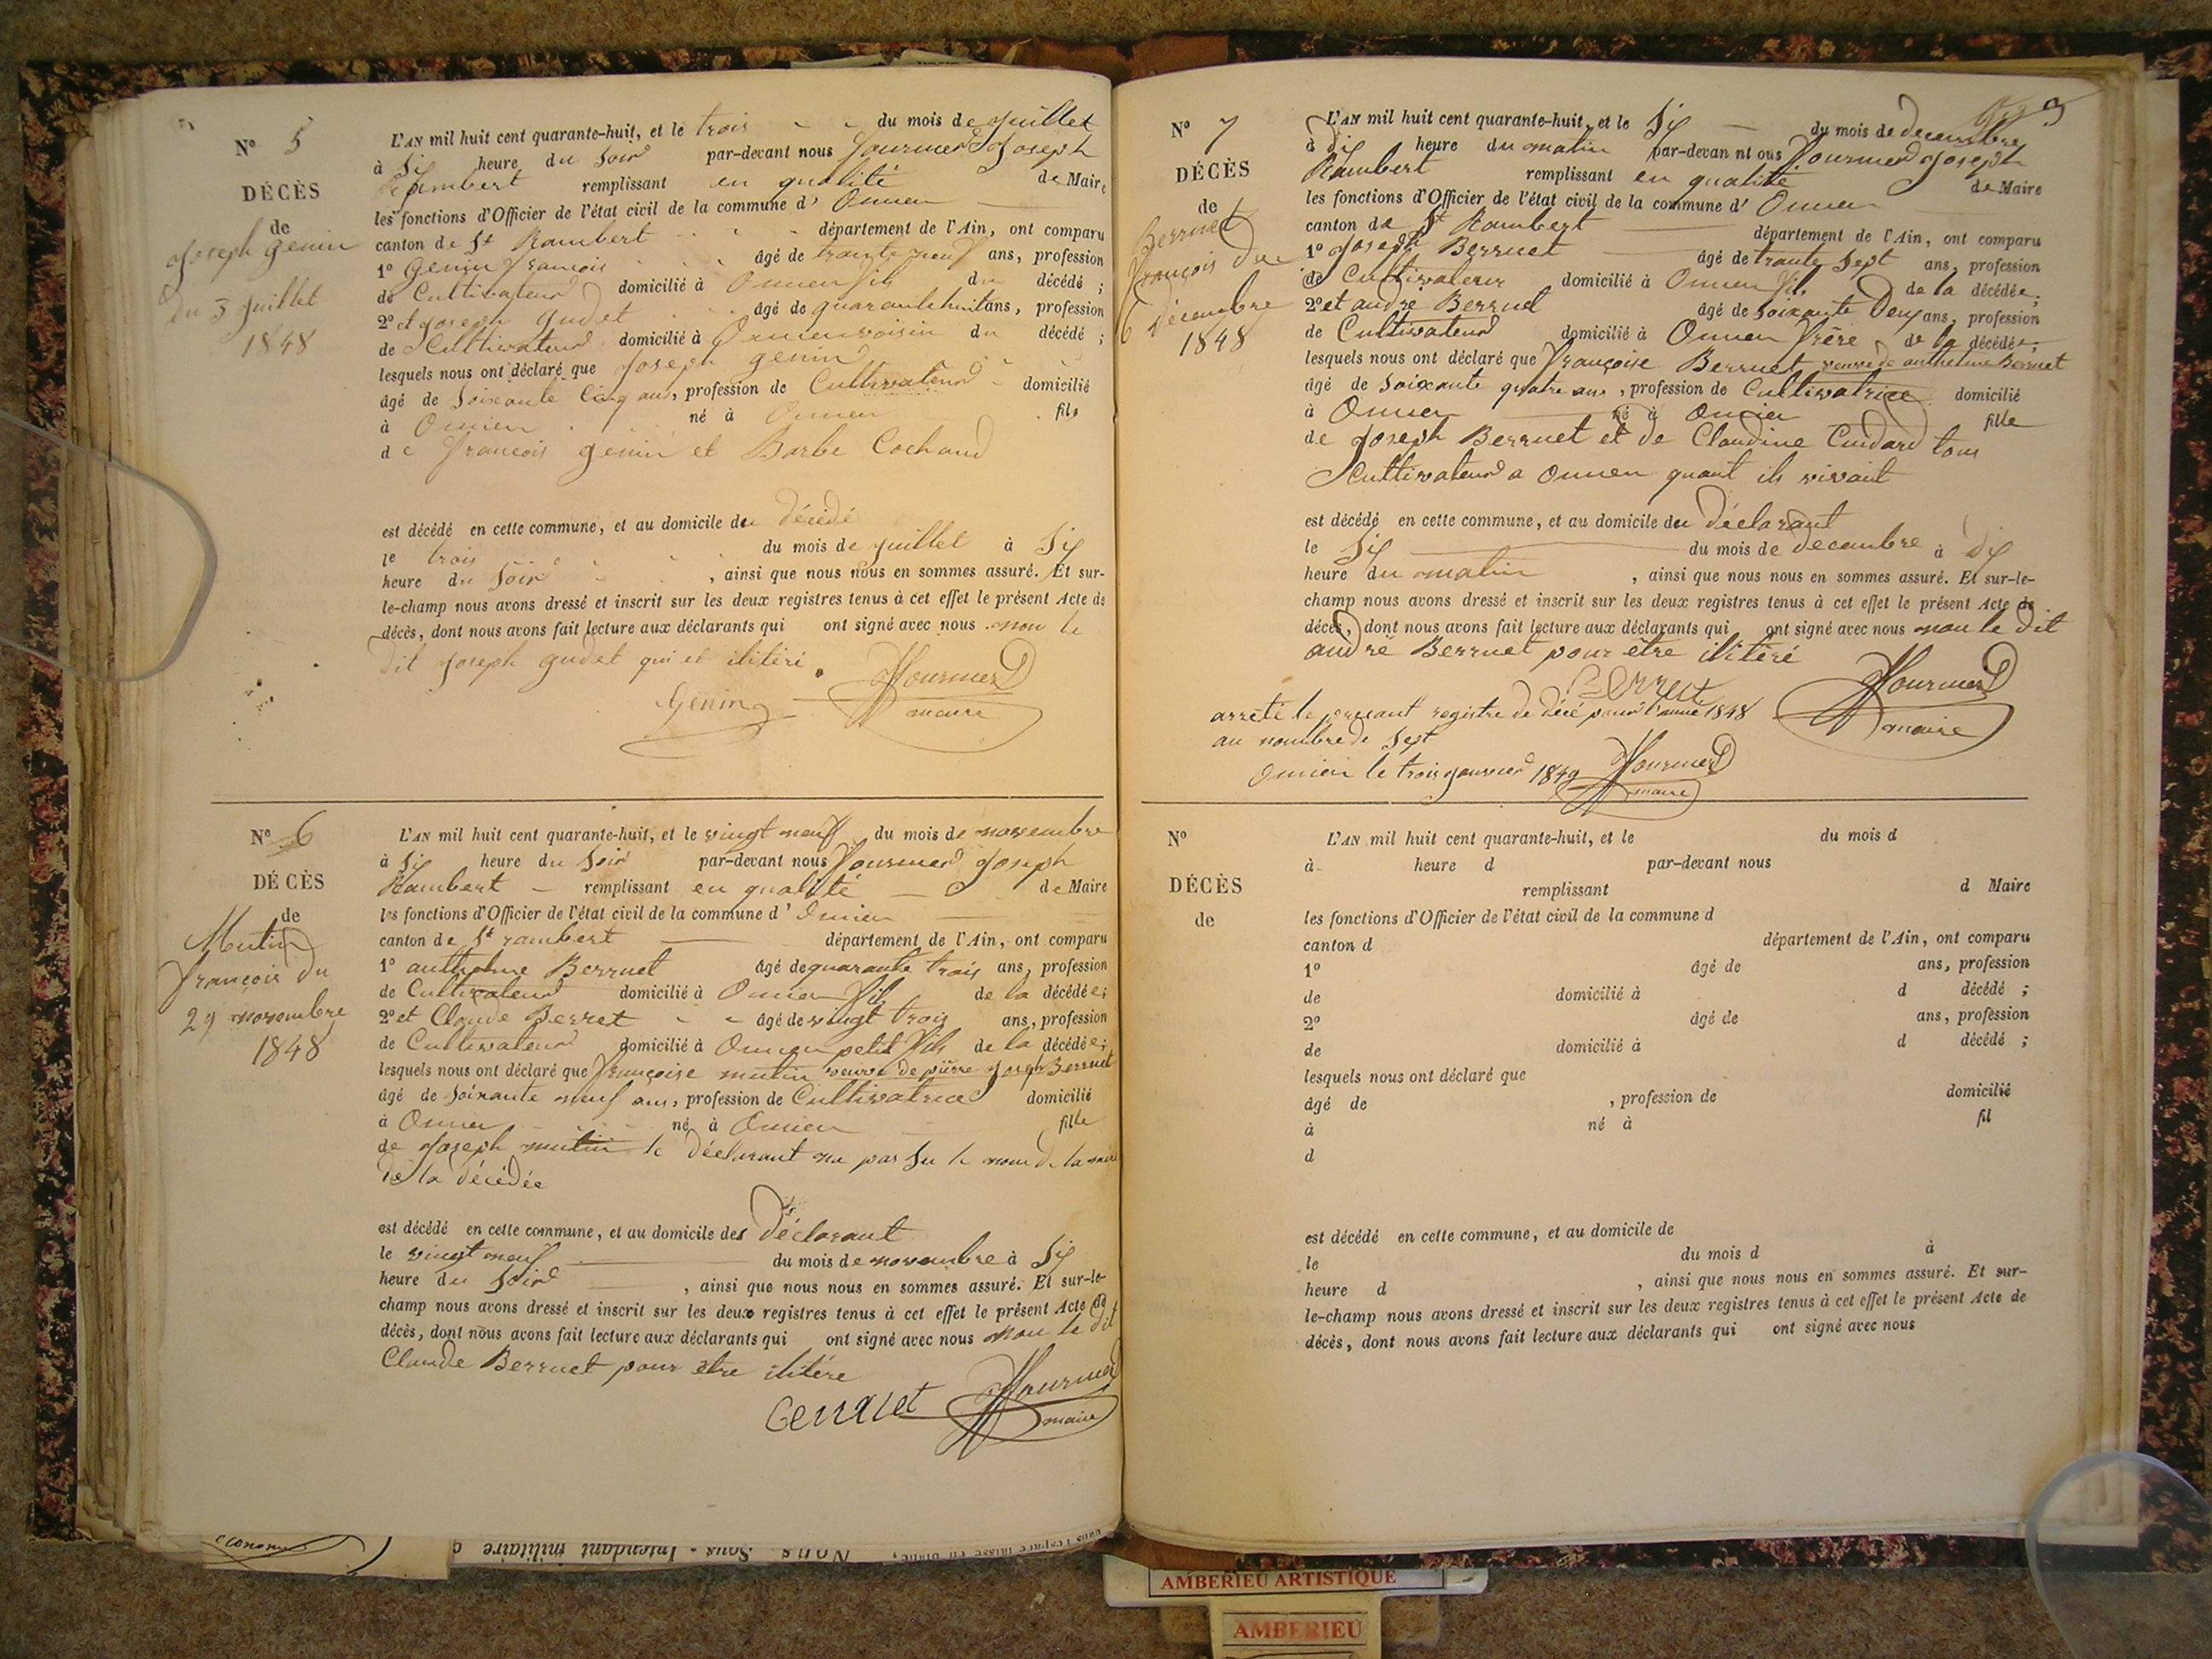 N° 5
DÉCÈS
de
Joseph genin
du 3 Juillet
1848
L'AN mil huit cent quarante-huit, et le trois du mois de Juillet
à Six heure du Soir par-devant nous fournier Joseph
Rambert remplissant en qualité de Maire
les fonctions d'Officier de l'état civil de la commune d' Oncieu
canton de St Rambert département de l'Ain, ont comparu
1° genin francois âgé de trante neuf ans, profession
de Cultivateur domicilié à Oncieu fils du décédé ;
2° et Joseph gudet âgé de quarante huit ans, profession
de Cultivateur domicilié à Oncieu voisin du décédé ;
lesquels nous ont déclaré que Joseph genin
âgé de Soixante Cinq ans, profession de Cultivateur domicilié
à Oncieu né à Oncieu fils
de francois genin et Barbe Cochand
est décédé en cette commune, et au domicile du décédé
le trois du mois de Juillet à Six
heure du Soir , ainsi que nous nous en sommes assuré. Et sur-
le-champ nous avons dressé et inscrit sur les deux registres tenus à cet effet le présent Acte de
décès, dont nous avons fait lecture aux déclarants qui ont signé avec nous non le
dit Joseph gudet qui et ilitéri.
Genin fournier
maire
N° 6
DÉCÈS
de
Mutin
françoise du
29 novembre
1848
L'AN mil huit cent quarante-huit, et le vingt neuf du mois de novembre
à Six heure du Soir par-devant nous fournier Joseph
Rambert remplissant en qualité de Maire
les fonctions d'Officier de l'état civil de la commune d' Oncieu
canton de St rambert département de l'Ain, ont comparu
1° anthelme Berruet âgé de quarante trois ans, profession
de Cultivateur domicilié à Oncieu fils de la décédée ;
2° et Claude Berret âgé de vingt trois ans, profession
de Cultivateur domicilié à Oncieu petit fils de la décédée ;
lesquels nous ont déclaré que françoise mutin veuve de pierre Joseph Berruet
âgé de Soixante neuf ans, profession de Cultivatrice domicilié
à Oncieu né à Oncieu fille
de Joseph mutin le déclarant na pas su le nom de la mère
de la décédée
est décédé en cette commune, et au domicile des déclarant
le vingt neuf du mois de novembre à Six
heure du Soir , ainsi que nous nous en sommes assuré. Et sur-le-
champ nous avons dressé et inscrit sur les deux registres tenus à cet effet le présent Acte de
décès, dont nous avons fait lecture aux déclarants qui ont signé avec nous non le dit
Claude Berruet pour être ilitére
fournier
maire
N° 7
DÉCÈS
de
Berruet
françoise du
6 décembre
1848
L'AN mil huit cent quarante-huit, et le Six du mois de decembre
à dix heure du matin par-devan nt ous fournier Joseph
Rambert remplissant en qualité de Maire
les fonctions d'Officier de l'état civil de la commune d' Oncieu
canton de St Rambert département de l'Ain, ont comparu
1° Joseph Berruet âgé de trante Sept ans, profession
de Cultivateur domicilié à Oncieu fils de la décédée ;
2° et andré Berruet âgé de Soixante Deux ans, profession
de Cultivateur domicilié à Oncieu frère de la décédée ;
lesquels nous ont déclaré que françoise Berruet veuve de anthelme Berruet
âgé de Soixante quatre ans, profession de Cultivatrice domicilié
à Oncieu né à Oncieu fille
de Joseph Berruet et de Claudine Cuidard tous
Cultivateur a Oncieu quant ils vivait
est décédé en cette commune, et au domicile du déclarant
le Six du mois de decembre à dix
heure du matin , ainsi que nous nous en sommes assuré. Et sur-le-
champ nous avons dressé et inscrit sur les deux registres tenus à cet effet le présent Acte de
décès, dont nous avons fait lecture aux déclarants qui ont signé avec nous non le dit
andré Berruet pour être ilitéré
Berruet fournier
maire
arreté le presant registre de décé pour l'anné 1848
au nombre de Sept
Oncieu le trois Janvier 1849 fournier
maire
N°
DÉCÈS
de
L'AN mil huit cent quarante-huit, et le du mois d
à heure d par-devant nous
remplissant d Maire
les fonctions d'Officier de l'état civil de la commune d
canton d département de l'Ain, ont comparu
1° âgé de ans, profession
de domicilié à d décédé ;
2° âgé de ans, profession
de domicilié à d décédé ;
lesquels nous ont déclaré que
âgé de , profession de domicilié
à né à fil
d
est décédé en cette commune, et au domicile de
le du mois d à
heure d , ainsi que nous nous en sommes assuré. Et sur-
le-champ nous avons dressé et inscrit sur les deux registres tenus à cet effet le présent Acte de
décès, dont nous avons fait lecture aux déclarants qui ont signé avec nous
Nous Sous-Intendant militaire
AMBERIEU ARTISTIQUE
AMBERIEU